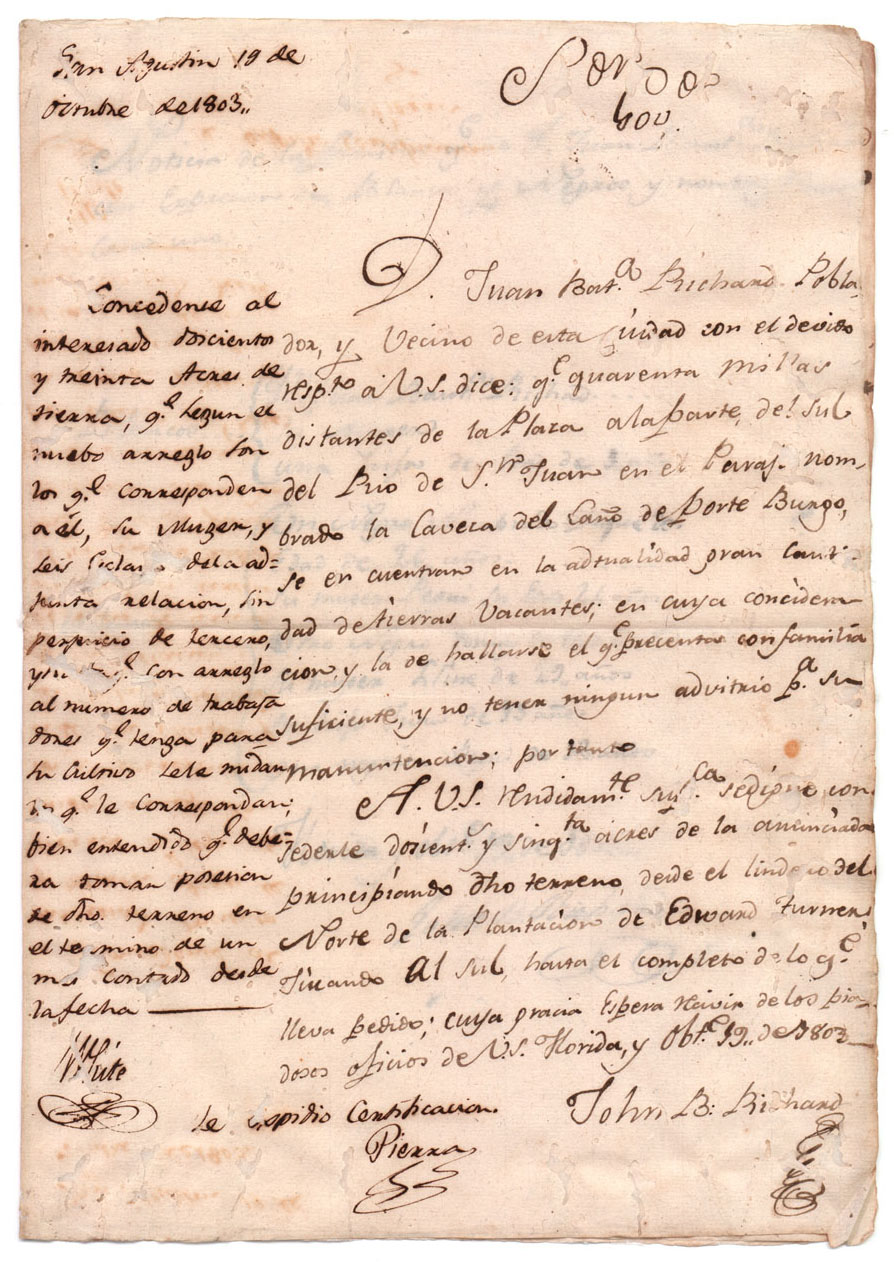 San Agustin 19 de
octubre de 1803.,
Sor. Dor.
Gov.
Concedense al
interesado doscientos
y treinta Acres de
tierra, q.e segun el
nuebo arreglo son
los q.e corresponden
a él, su Muger, y
seis Esclavos de la ad=
junta relacion, sin
perjuicio de tercero,
q.e con arreglo
al numero de trabaja
dores q.e tenga para
su cultivo se le midan
q.e le correspondan;
bien entendido q.e debe=
ra tomar posesion
de dho. terreno en
el termino de un
mes contado desde
la fecha
White
D. Juan Bat.a Richard Pobla-
dor, y Vecino de esta Ciudad con el devido
resp.to a V.S. dice: q.e quarenta millas
distantes de la Plaza a la parte, del Sul
del Rio de S.n Juan en el Paraj.e nom-
brado la Caveza del Caño de Porte Burgo,
se en cuentran en la adtualidad gran canti-
dad de tierras vacantes; en cuya concidera
cion, y la de hallarse el q.e precenta con familia
suficiente, y no tener ningun advitrio p.a su
manuntencion; por tanto
A. V.S. rendidam.te sup.ca se digne con
sederle dosient.s y sinq.ta acres de la anunciada
principiando dho terreno, desde el lindero del
Norte de la Plantacion de Edward Turner
tirando al sul, hasta el completo de lo q.e
lleva pedido; cuya gracia Espera resivir de los pia
dosos oficios de V.S. Florida, y Obt.e 19., de 1803
John B: Richard
Se espidio Certificacion.
Pierra